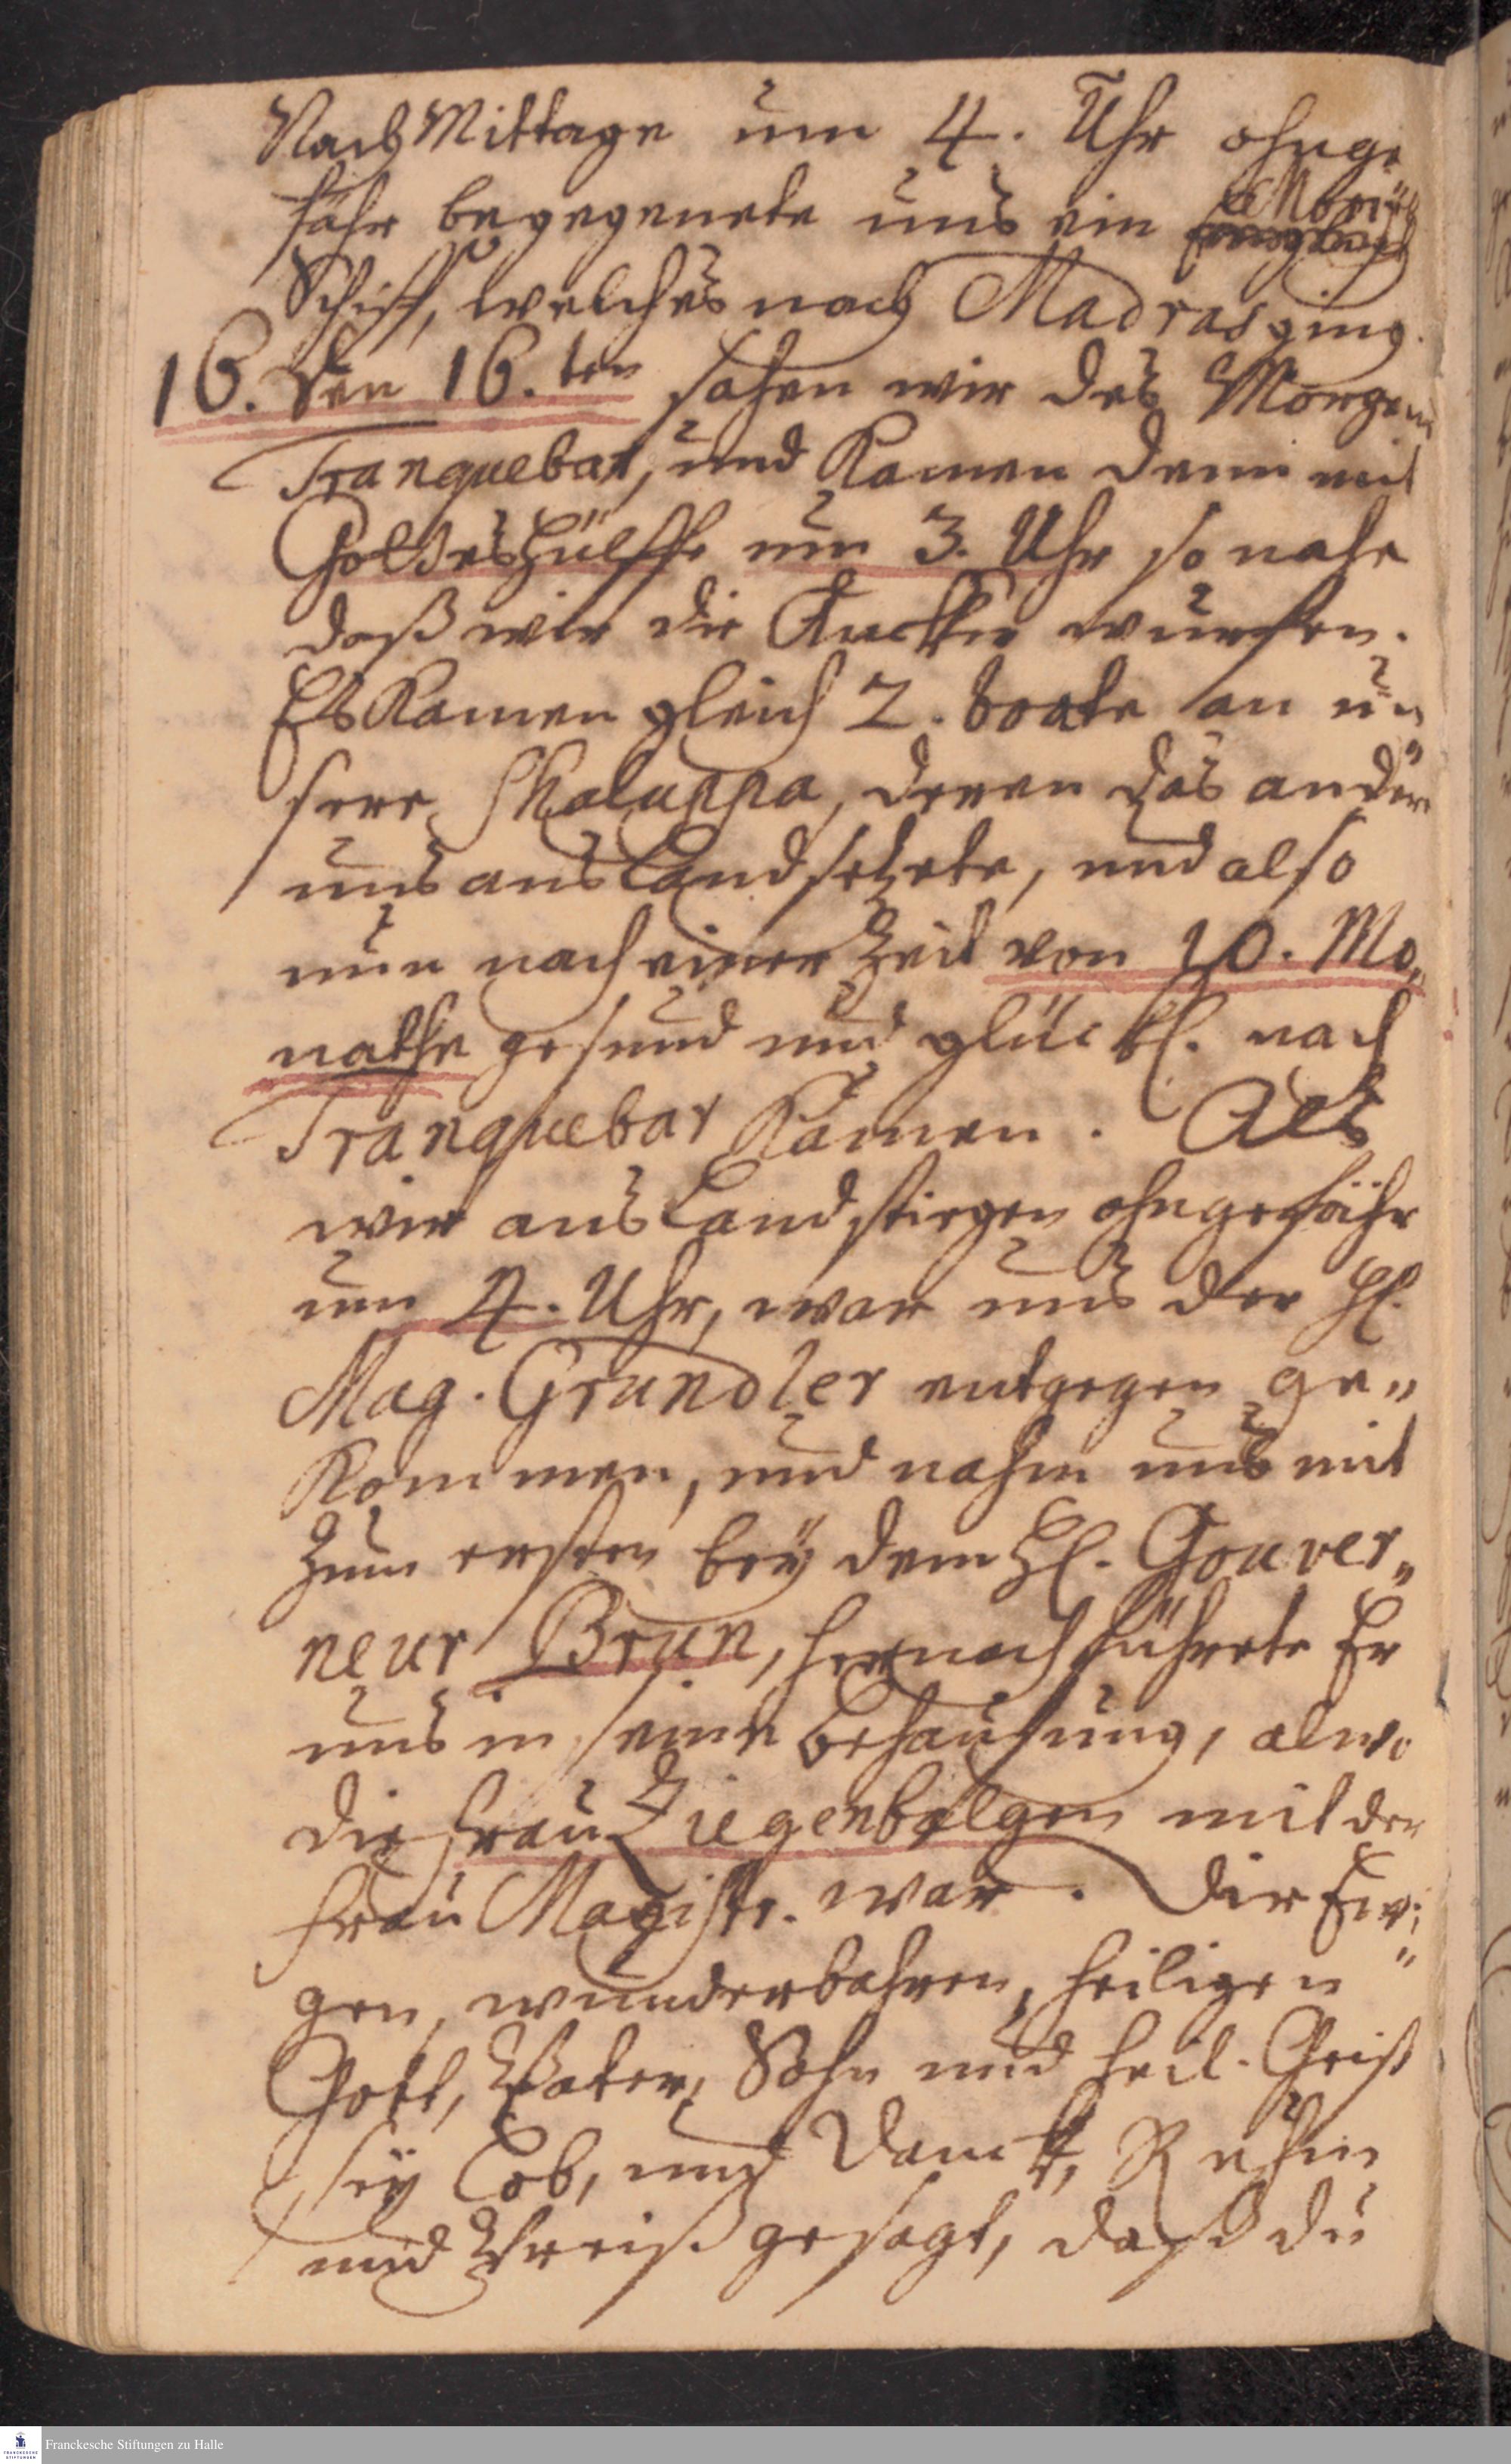 Nach Mittage um 4. Uhr ohnge
fähr begegnete uns ein
Schiff, welches nach Madras ging.
16. Den 16.ten sahen wir des Morgens
Tranquebar, und kamen denn mit
Gottes Hülffe um 3. Uhr so nahe
daß wir die Ancker wurfen.
Es kamen gleich 2. boote an un=
sere Chaluppa, deren das andere
uns ans Land setzete, und also
nun nach einer Zeit von 10. Mo„
nathe gesund und glückl. nach
Tranquebar kamen. Als
wir ans Land stiegen ohngefähr
um 4. Uhr, war uns der H.
Mag. Grundler entgegen ge„
kommen, und nahm uns mit
zum ersten bey dem H. Gouver„
neur Brun, hernach führete Er
uns in seine behausung, alwo
die Frau Ziegenbalgen mit der
Frau Magistr. war. Dir Ewi„
gen, wunderbahren, heiligen
Gott, Vater, Sohn und heil. Geist
sey Lob, und Danck, Ruhm
und Preiß gesagt, daß du
Franckesche Stiftungen zu Halle